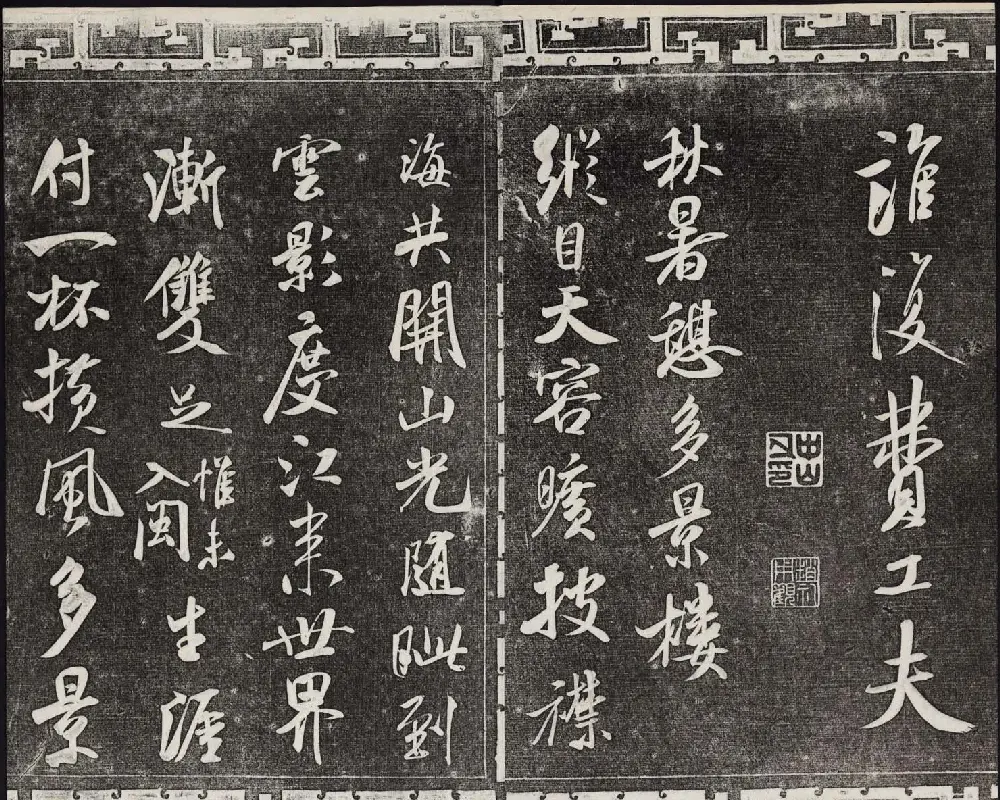 誰復費工夫
秋暑憩多景樓
縱目天容曠披襟
海共開山光隨眦到
雲影度江來世界
漸雙足惟未入閩生涯
付一杯横風多景